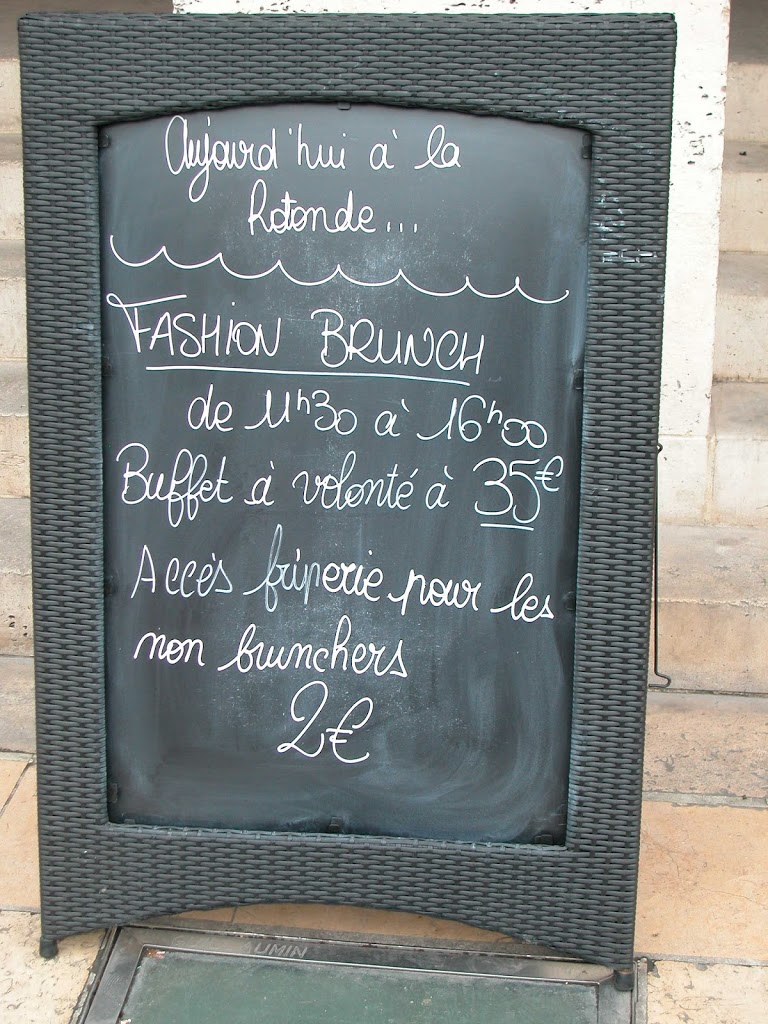 Aujourd'hui à la
Rotonde...
FASHION BRUNCH
de 11h30 à 16h00
Buffet à volonté à 35€
Accès friperie pour les
non brunchers
2€
UMIN